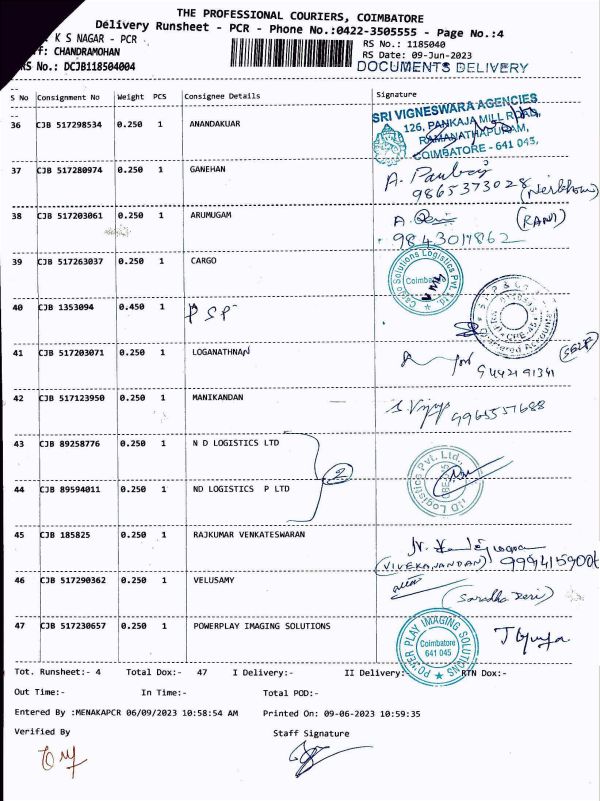 THE PROFESSIONAL COURIERS, COIMBATORE
Delivery Runsheet - PCR - Phone No.:0422-3505555 - Page No.:4
K S NAGAR - PCR
RS No.: 1185040
CHANDRAMOHAN
RS Date: 09-Jun-2023
RS No.: DCJB118504004
DOCUMENTS DELIVERY
S No Consignment No Weight PCS Consignee Details Signature
36 CJB 517298534 0.250 1 ANANDAKUAR
SRI VIGNESWARA AGENCIES
126, PANKAJA MILL ROAD,
RAMANATHAPURAM,
COIMBATORE - 641 045.
37 CJB 517280974 0.250 1 GANEHAN
9865373028
38 CJB 517203061 0.250 1 ARUMUGAM
(RANI)
9843017862
39 CJB 517263037 0.250 1 CARGO
Solutions Logistics Pvt. Ltd
Coimbatore
40 CJB 1353094 0.450 1 PSP
41 CJB 517203071 0.250 1 LOGANATHNAN
(SELF)
9442191341
42 CJB 517123950 0.250 1 MANIKANDAN
S Vijaya 9965557688
43 CJB 89258776 0.250 1 N D LOGISTICS LTD
2
N D Logistics Pvt. Ltd.,
44 CJB 89594011 0.250 1 ND LOGISTICS P LTD
45 CJB 185825 0.250 1 RAJKUMAR VENKATESWARAN
(VIVEKANANDAN)
46 CJB 517290362 0.250 1 VELUSAMY
47 CJB 517230657 0.250 1 POWERPLAY IMAGING SOLUTIONS
POWER PLAY IMAGING SOLUTIONS
Coimbatore
641 045
Tot. Runsheet:- 4 Total Dox:- 47 I Delivery:- II Delivery:- RTN Dox:-
Out Time:- In Time:- Total POD:-
Entered By :MENAKAPCR 06/09/2023 10:58:54 AM Printed On: 09-06-2023 10:59:35
Verified By Staff Signature